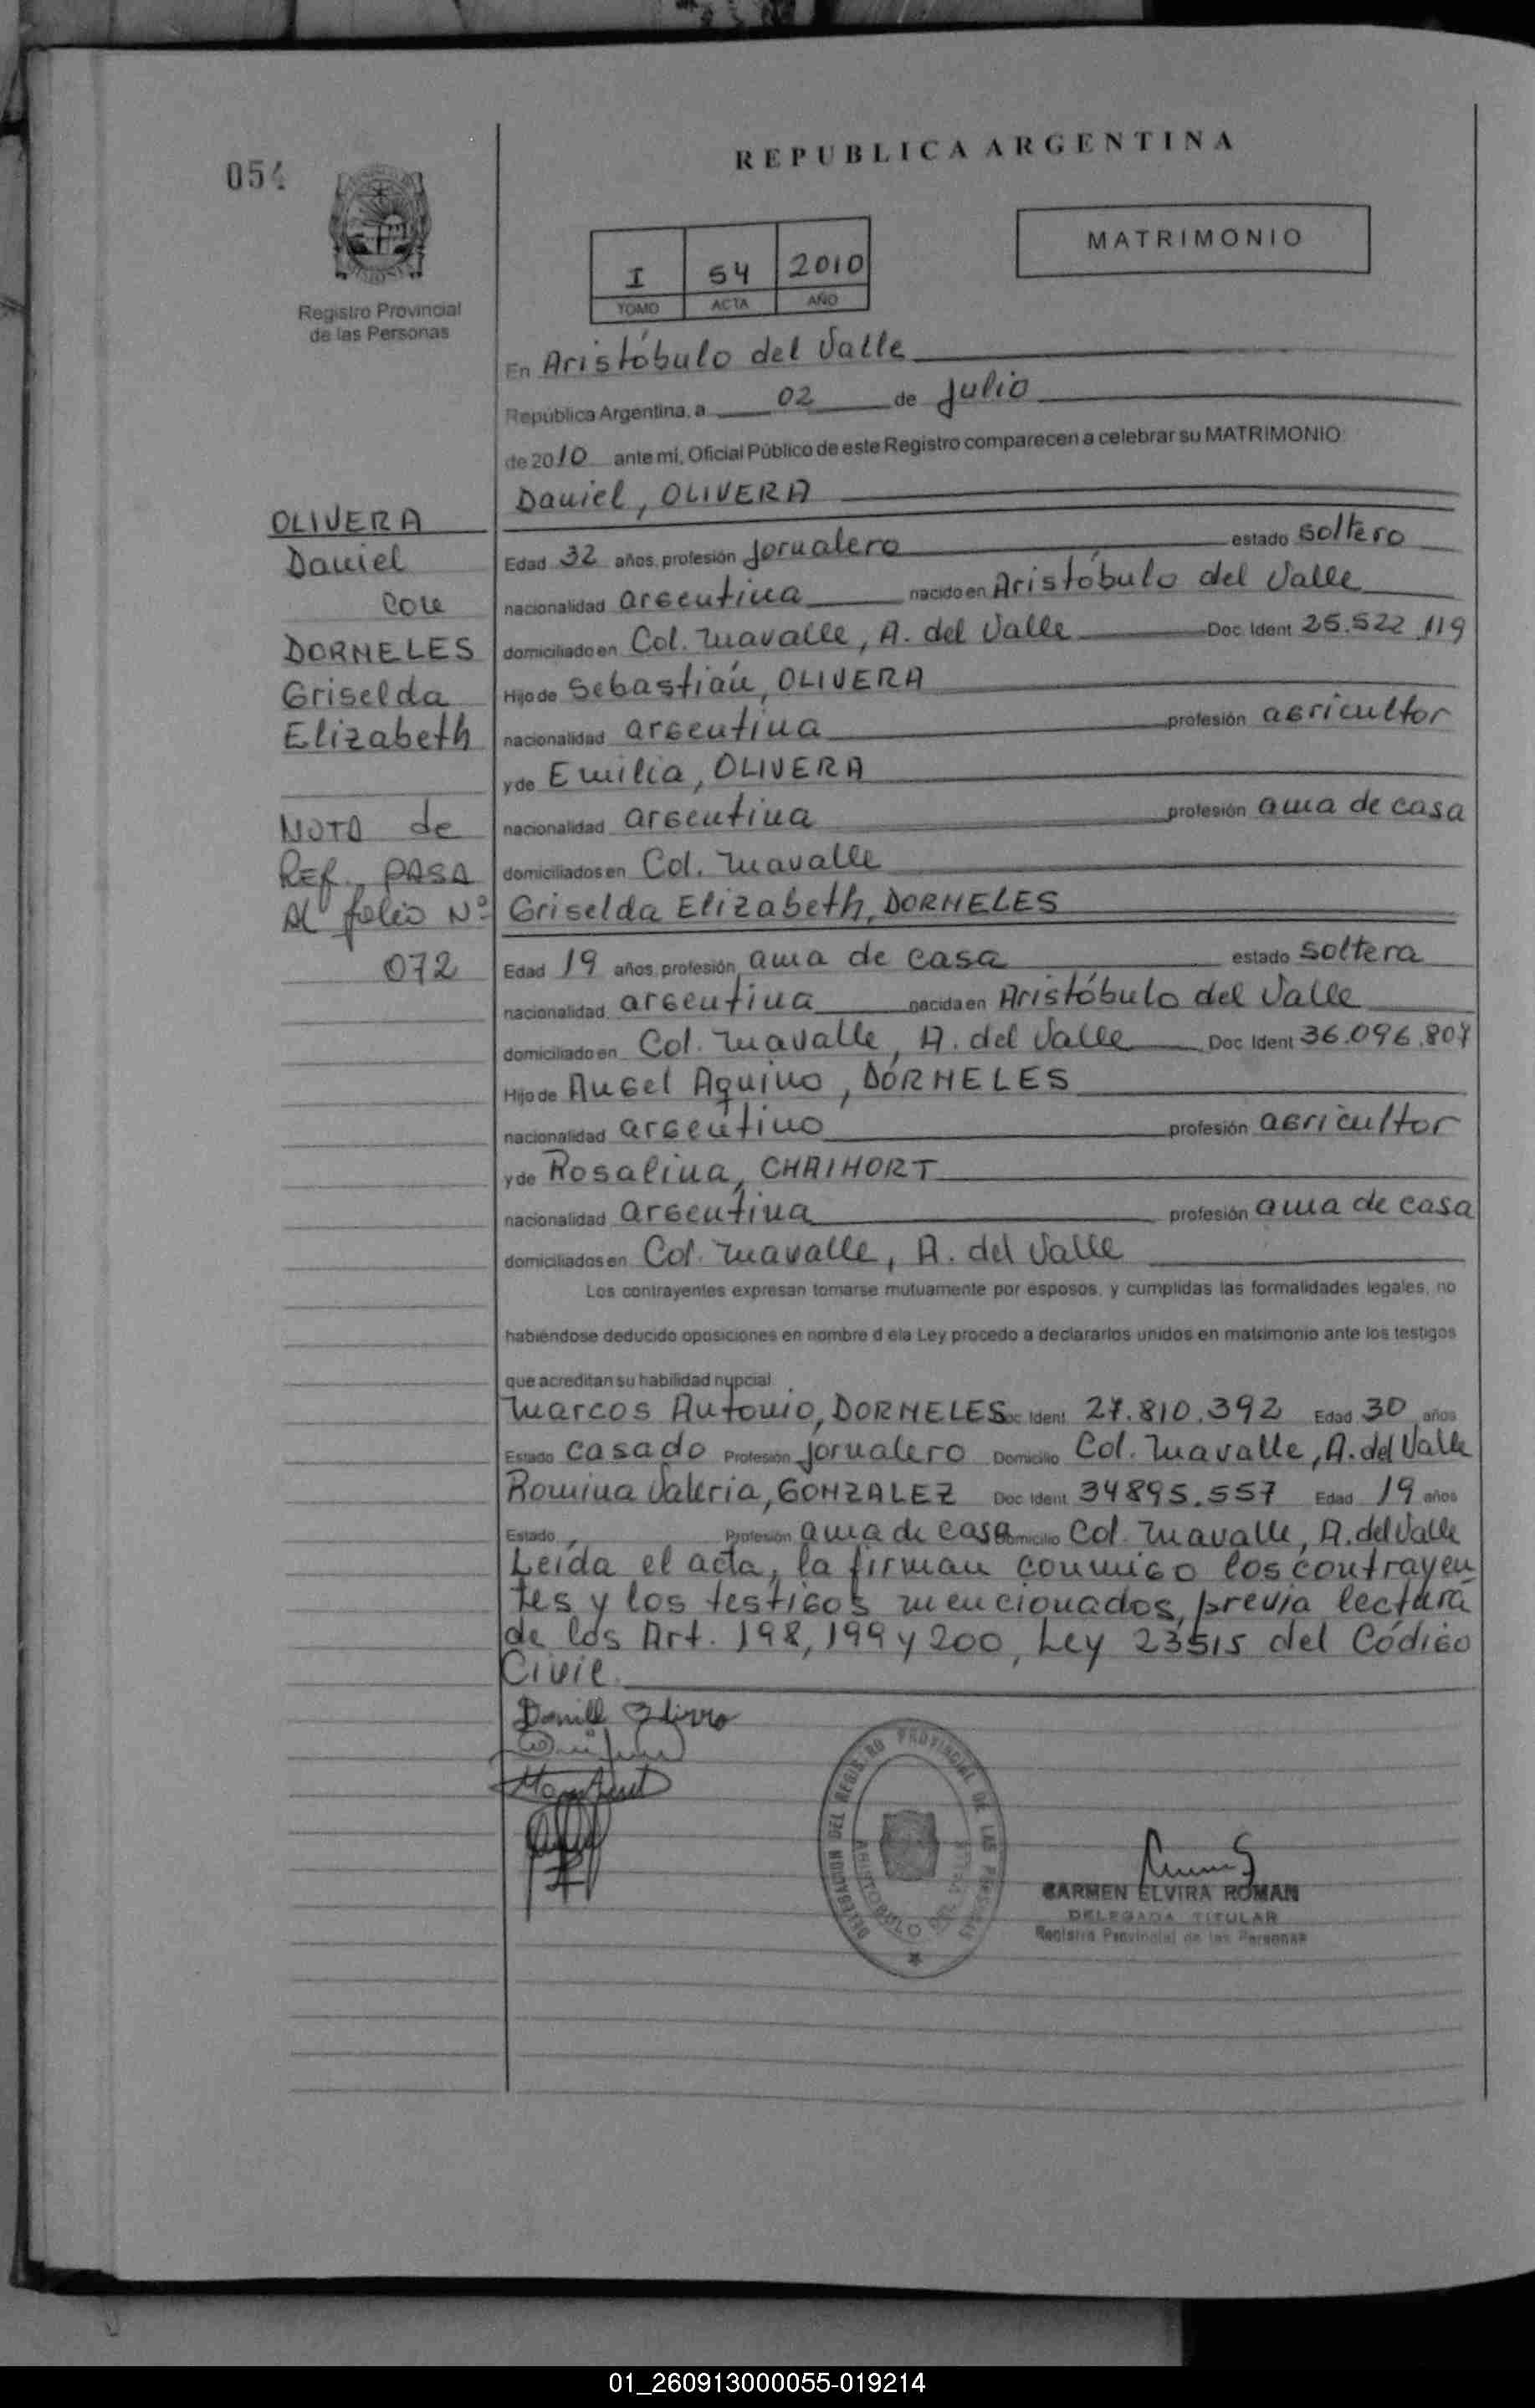 054
REPUBLICA ARGENTINA
MATRIMONIO
I 54 2010
TOMO ACTA AÑO
Registro Provincial
de las Personas
En Aristóbulo del Valle
República Argentina, a 02 de Julio
de 2010 ante mi, Oficial Público de este Registro comparecen a celebrar su MATRIMONIO:
Daniel, OLIVERA
Edad 32 años, profesión Jornalero estado soltero
nacionalidad argentina nacido en Aristóbulo del Valle
domiciliado en Col. Mavalle, A. del Valle Doc. Ident 25.522.119
Hijo de Sebastián, OLIVERA
nacionalidad argentina profesión agricultor
y de Emilia, OLIVERA
nacionalidad argentina profesión ama de casa
domiciliados en Col. Mavalle
Griselda Elizabeth, DORNELES
Edad 19 años, profesión ama de casa estado soltera
nacionalidad argentina nacida en Aristóbulo del Valle
domiciliado en Col. Mavalle, A. del Valle Doc. Ident 36.096.807
Hijo de Angel Aquino, DORNELES
nacionalidad argentino profesión agricultor
y de Rosalina, CHAIHORT
nacionalidad argentina profesión ama de casa
domiciliados en Col. Mavalle, A. del Valle
Los contrayentes expresan tomarse mutuamente por esposos, y cumplidas las formalidades legales, no
habiéndose deducido oposiciones en nombre d ela Ley procedo a declararlos unidos en matrimonio ante los testigos
que acreditan su habilidad nupcial
Marcos Antonio, DORNELES Doc. Ident 27.810.392 Edad 30 años
Estado casado Profesión Jornalero Domicilio Col. Mavalle, A. del Valle
Romina Valeria, GONZALEZ Doc Ident 34895.557 Edad 19 años
Estado Profesión ama de casa Domicilio Col. Mavalle, A. del Valle
Leída el acta, la firman conmigo los contrayen
tes y los testigos mencionados, previa lectura
de los Art. 198, 199 y 200, Ley 23515 del Código
Civil.
OLIVERA
Daniel
con
DORNELES
Griselda
Elizabeth
NOTA de
REF. PASA
Al folio Nº
072
DELEGACION DEL REGISTRO PROVINCIAL DE LAS PERSONAS
ARISTOBULO DEL VALLE
CARMEN ELVIRA ROMAN
DELEGADA TITULAR
Registro Provincial de las Personas
01_260913000055-019214